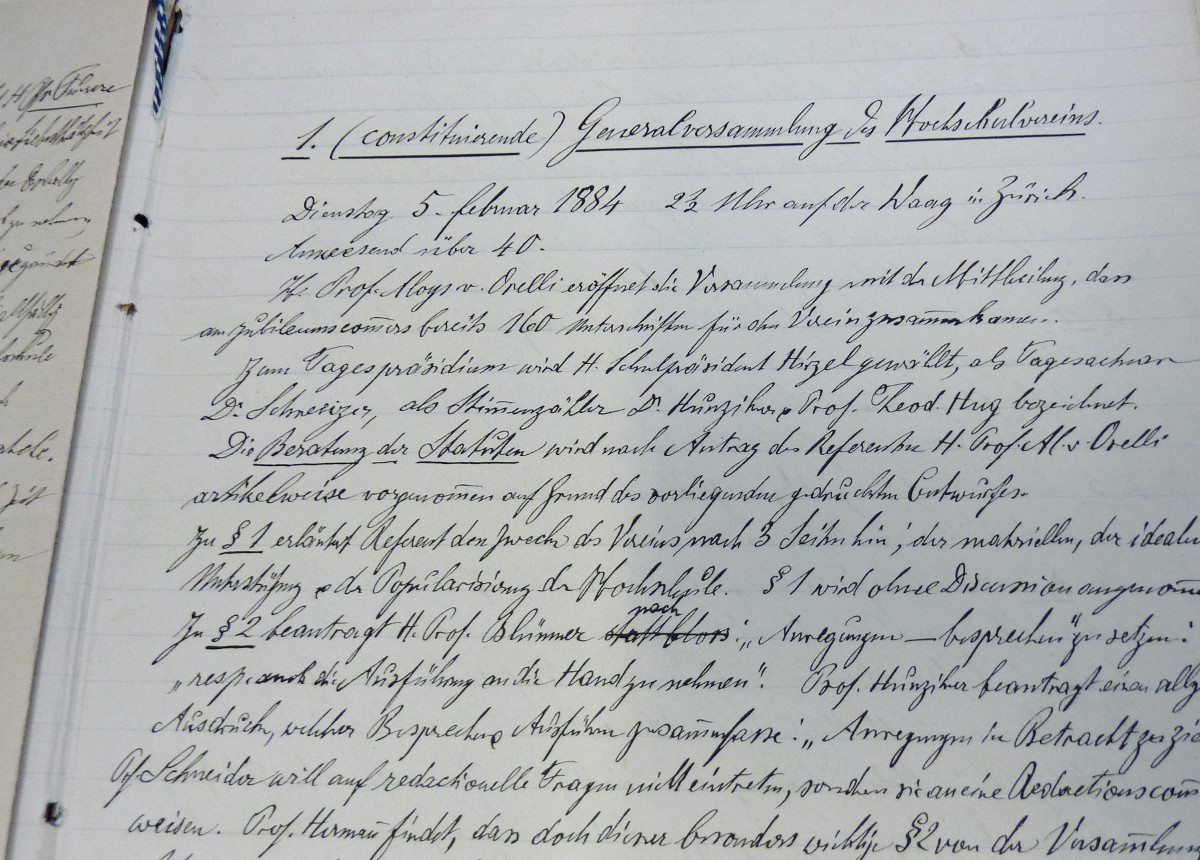 1. (constituirende) Generalversammlung des Hochschulvereins.
Dienstag 5. Februar 1884 2½ Uhr auf der Waag in Zürich.
Anwesend über 40.
H. Prof. Aloys v. Orelli eröffnet die Versammlung mit der Mittheilung, dass
am Jubiläumscom̅ers bereits 160 Unterschriften für den Verein zusam̅enkamen.
Zum Tagespräsidium wird H. Schulpräsident Hirzel gewählt, als Tagesactuar
Dr. Schweizer, als Stim̅enzähler Dr. Hunziker & Prof. Theod. Hug bezeichnet.
Die Beratung der Statuten wird nach Antrag des Referenten H. Prof. Al. v. Orelli
artikelweise vorgenom̅en auf Grund des vorliegenden gedruckten Entwurfes.
Zu § 1 erläutert Referent den Zweck des Vereins nach 3 Seiten hin; der materiellen, der idealen
Unterstützung & der Popularisirung der Hochschule. § 1 wird ohne Discussion angenom̅e
Zu § 2 beantragt H. Prof. Blümner statt blos nach: „Anregungen — besprechen" zu setzen:
„resp. auch die Ausführung an die Hand zu nehmen". Prof. Hunziker beantragt einen allg
Ausdruck, welcher Besprechen & Ausführen zusam̅enfasse: „Anregungen in Betracht zu zie
Pf. Schneider will auf redactionelle Fragen nicht eintreten, sondern sie an eine Redactionscom̅
weisen. Prof. Herman̅ findet, dass doch dieser besonders wichtige § 2 von der Versammlun